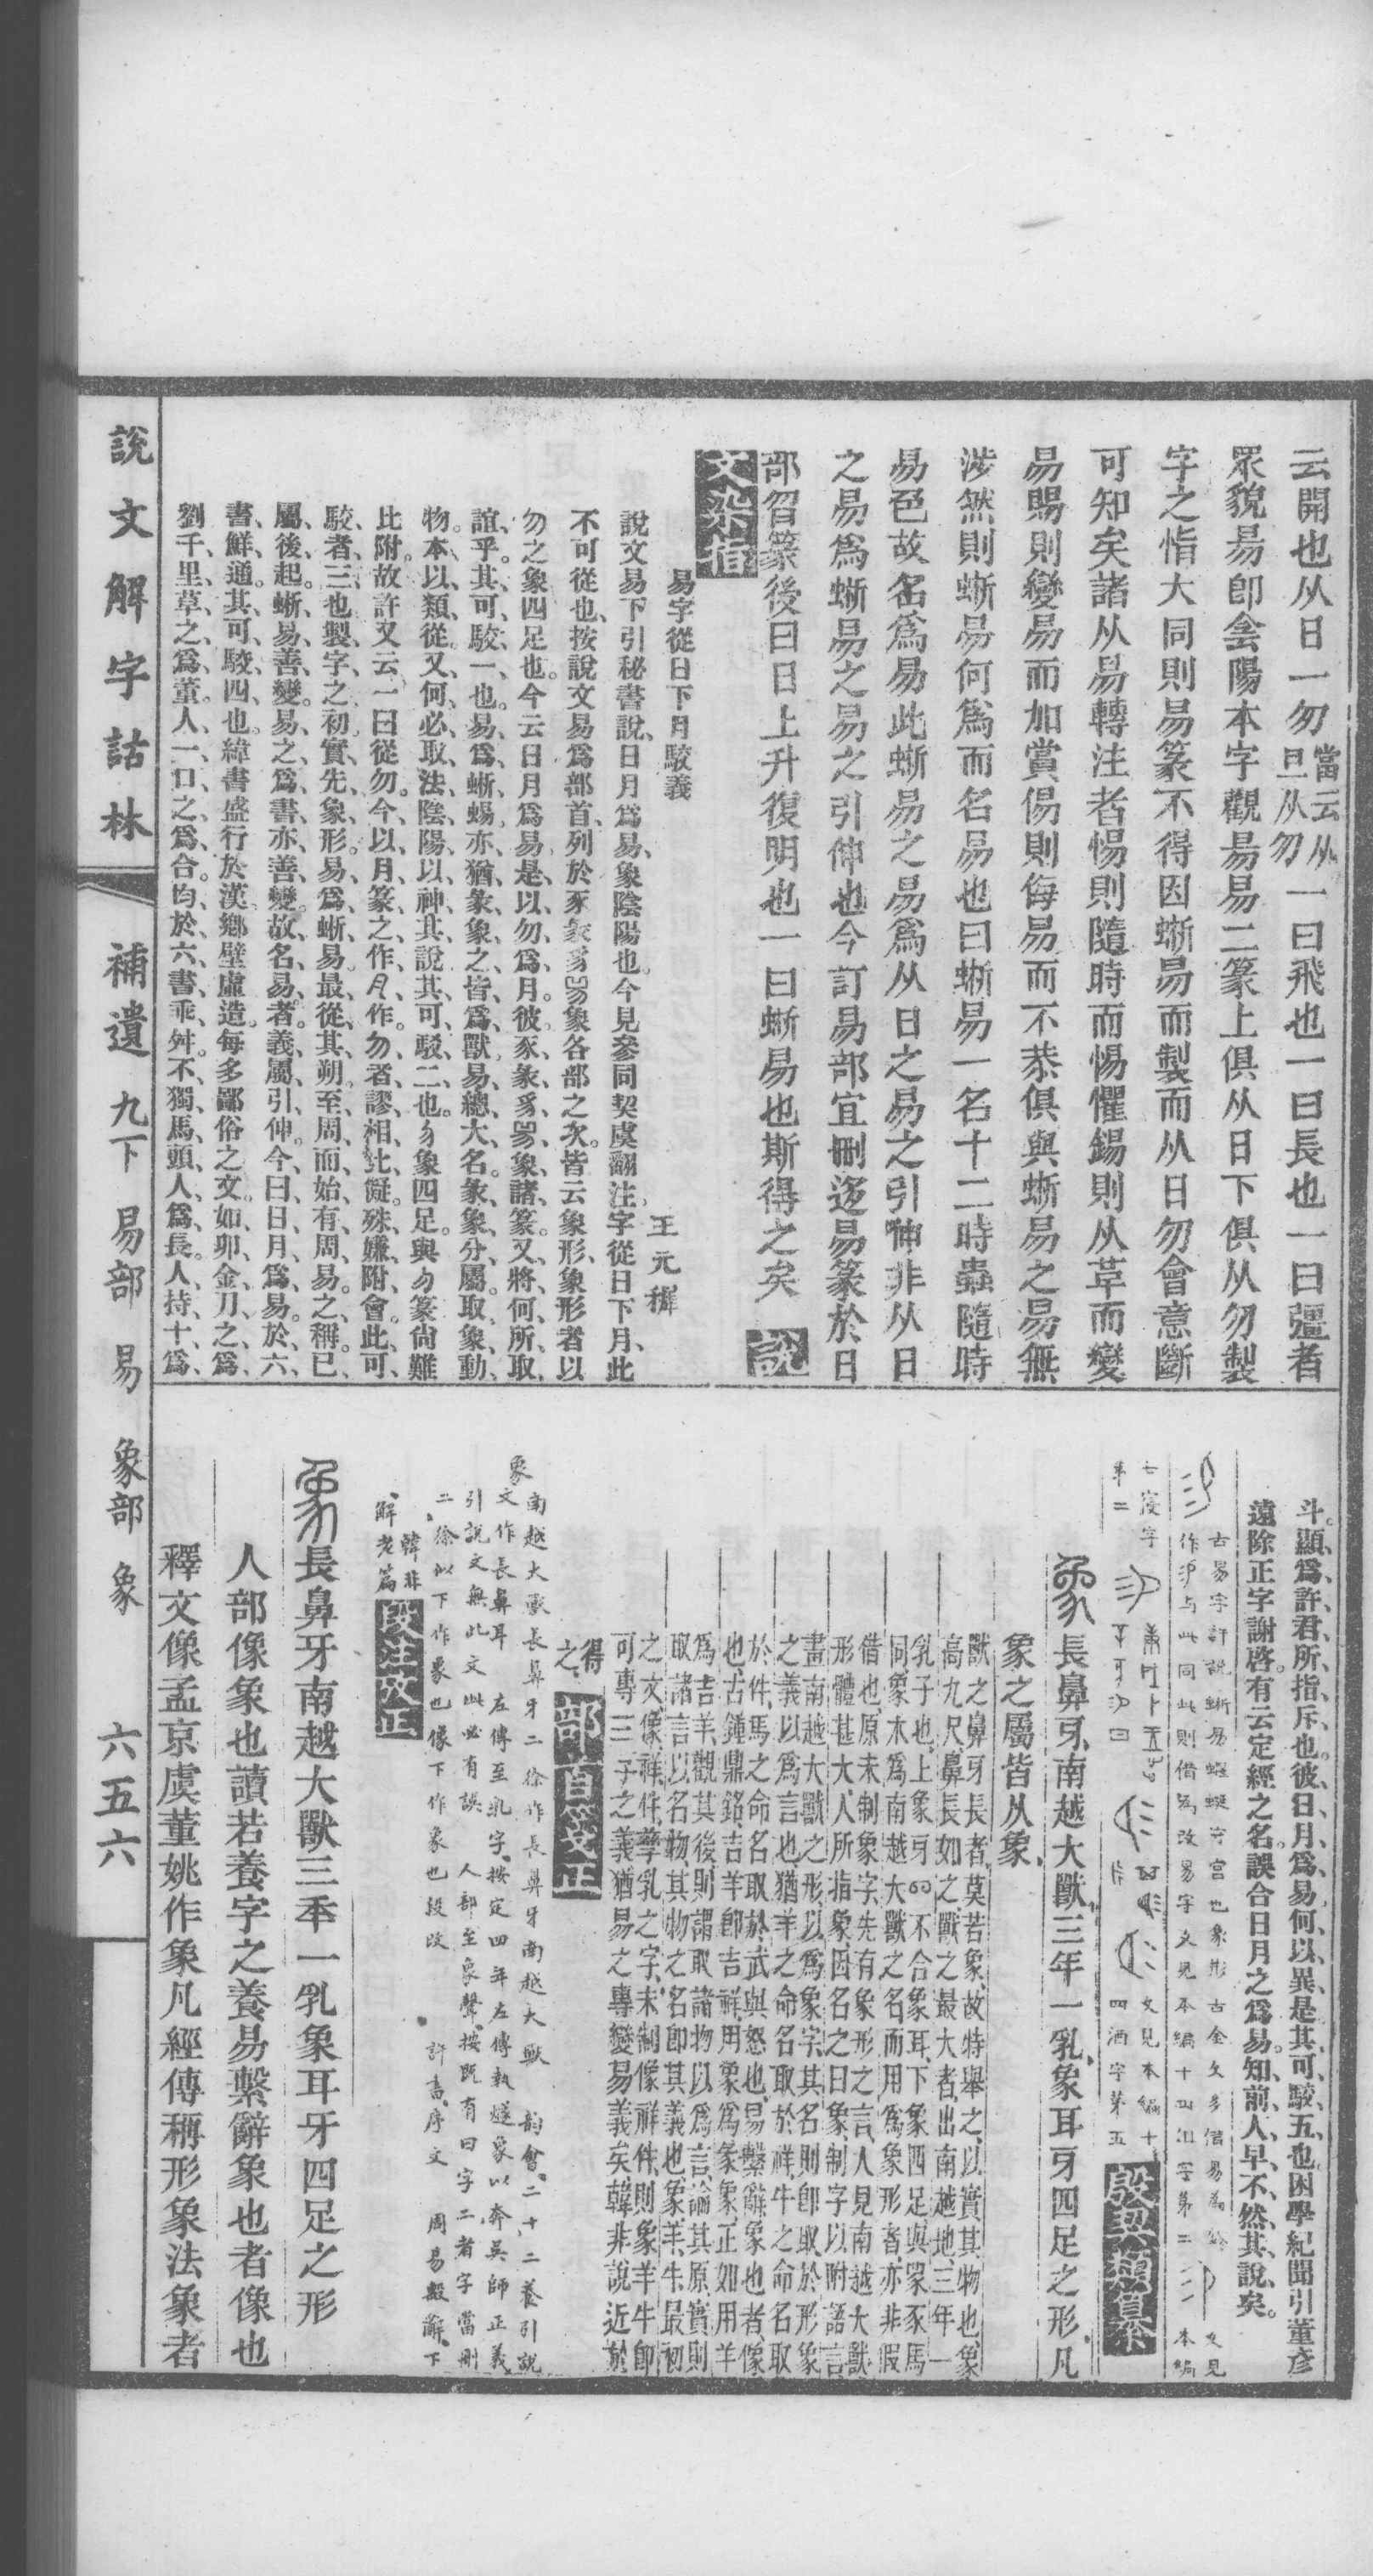 云開也从日一勿當云从旦从勿一曰飛也一曰長也一曰彊者
眾貌昜卽侌陽本字觀昜易二篆上俱从日下俱从勿製
字之恉大同則易篆不得因蜥易而製而从日勿會意斷
可知矣諸从易轉注者惕則隨時而惕懼錫則从革而變
易賜則變易而加賞傷則侮易而不恭俱與蜥易之易無
涉然則蜥易何爲而名易也曰蜥易一名十二時蟲隨時
易色故名爲易此蜥易之易爲从日之易之引伸非从日
之易爲蜥易之易之引伸也今訂易部宜刪迻易篆於日
部曶篆後曰日上升復明也一曰蜥易也斯得之矣 說
文染指
易字從日下月駮義 王元穉
說文易下引秘書說日月爲易象陰陽也今見參同契虞翻注字從日下月此
不可從也按說文易爲部首列於豕㣇豸𤉡象各部之次皆云象形象形者以
勿之象四足也今云日月爲易是以勿爲月彼豕彖豸𤉡象諸篆又將何所取
誼乎其可駮一也易爲蜥蜴亦猶彖象之皆爲獸易總大名彖象分屬取象動
物本以類從又何必取法陰陽以神其說其可駮二也勿象四足與勿篆尙難
比附故許又云一曰從勿今以月篆之作月作勿者謬相比儗殊嫌附會此可
駮者三也製字之初實先象形易爲蜥易最從其朔至周而始有周易之稱已
屬後起蜥易善變易之爲書亦善變故名易者義屬引伸今曰日月爲易於六
書鮮通其可駮四也緯書盛行於漢鄉壁虛造每多鄙俗之文如卯金刀之爲
劉千里草之爲董人一口之爲合均於六書乖舛不獨馬頭人爲長人持十爲
斗顯爲許君所指斥也彼日月爲易何以異是其可駮五也困學紀聞引董彥
遠除正字謝啓有云定經之名誤合日月之爲易知前人早不然其說矣
古易字許說蜥易蝘蜓守宮也象形古金文多借易爲 文見本編
作 与此同此則借爲改易字文見本編十四 字第二 本編
七 字 文見本編十
第二 四酒字第五 殷契類纂
象長鼻牙南越大獸三年一乳象耳牙四足之形凡
象之屬皆从象
獸之鼻牙長者莫若象故特舉之以實其物也象
高九尺鼻長如之獸之最大者出南越地三年一
乳子也上象牙 不合象耳下象四足與冢豕馬
同象本爲南越大獸之名而用爲象形者亦非假
借也原未制象字先有象形之言人見南越大獸
形體甚大人所指象因名之曰象制字以附語言
畫南越大獸之形以爲象字其名則卽取於形象
之義以爲言也猶羊之命名取於祥牛之命名取
於件馬之命名取於武與怒也易繫辭象也者像
也古鍾鼎銘吉羊卽吉祥用象爲彖象正如用羊
爲吉羊觀其後則謂取諸物以爲言論其原實則
取諸言以名物其物之名卽其義也象羊牛最初
之文像祥件孳乳之字未制像祥件則象羊牛卽
可專三字之義猶易之專變易義矣韓非說近於
得之 部首箋正
象
南越大獸長鼻牙二徐作長鼻牙南越大獸 韵會二十二養引說
文作長鼻耳 左傳至乳字按定四年左傳執燧象以奔吳師正義
引說文無此文此必有誤 人部至象聲按既有曰字二者字當刪
二徐似下作象也像下作象也段改 許書序文 周易繫辭下
韓非解老篇 段注攷正
象長鼻牙南越大獸三秊一乳象耳牙四足之形
人部像象也讀若養字之養易繫辭象也者像也
釋文像孟京虞董姚作象凡經傳稱形象法象者
說文解字詁林 補遺 九下 易部 易 象部 象 六五六